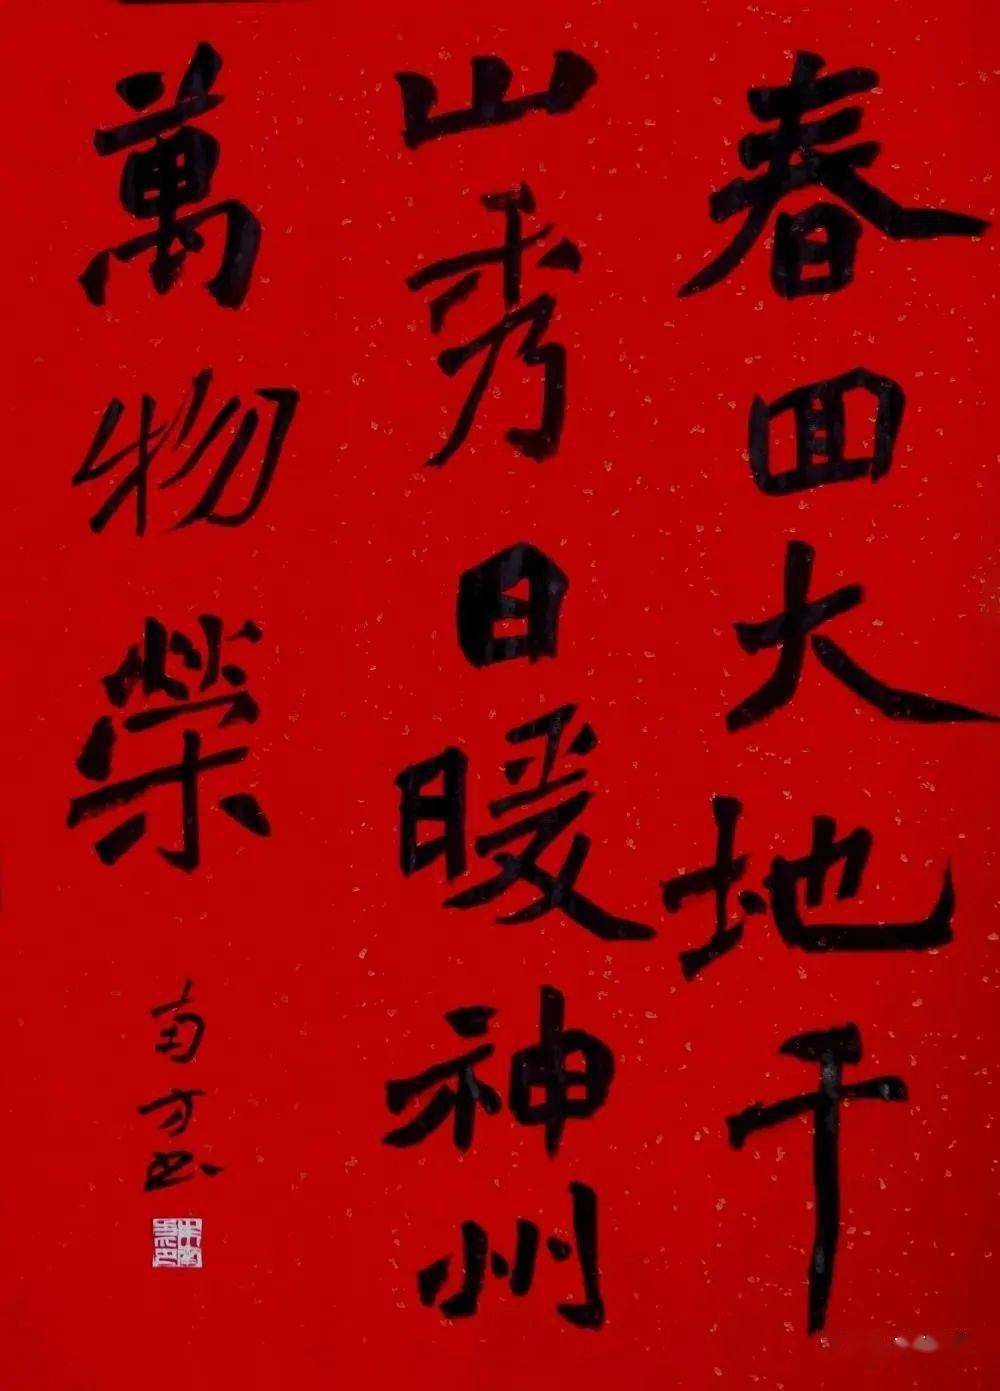 春回大地千
山秀日暖神州
萬物榮
南方书